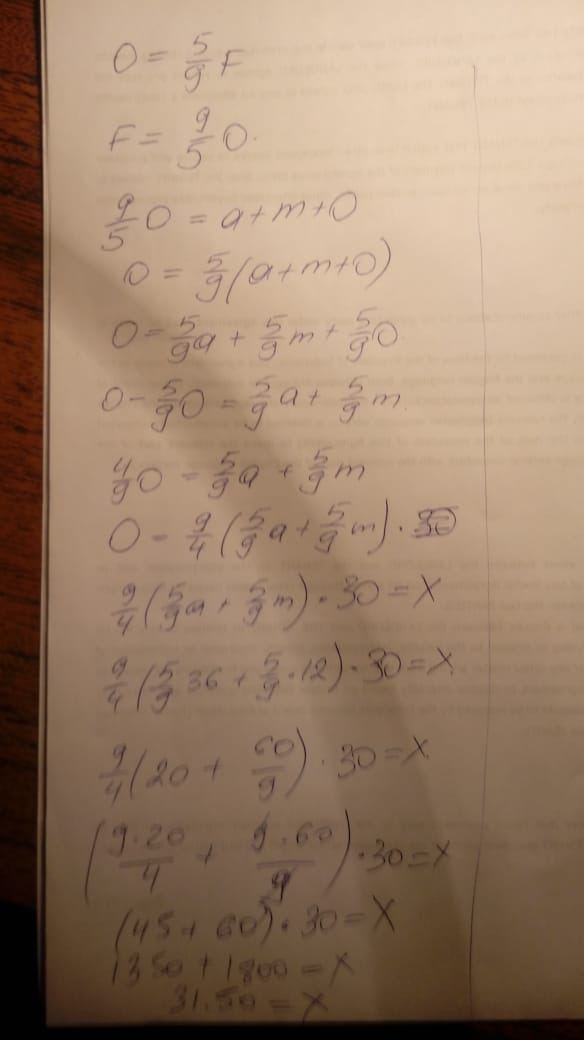 O = 5/9 F
F = 9/5 O.
9/5 O = a + m + O
O = 5/9 (a + m + O)
O = 5/9 a + 5/9 m + 5/9 O.
O - 5/9 O = 5/9 a + 5/9 m.
4/9 O = 5/9 a + 5/9 m
O = 9/4 (5/9 a + 5/9 m) · 30
9/4 (5/9 a + 5/9 m) · 30 = X
9/4 (5/9 36 + 5/9 · 12) · 30 = X.
9/4 (20 + 60/9) · 30 = X
(9·20/4 + 9·60/9) · 30 = X
(45 + 60) · 30 = X
1350 + 1800 = X
31.50 = X